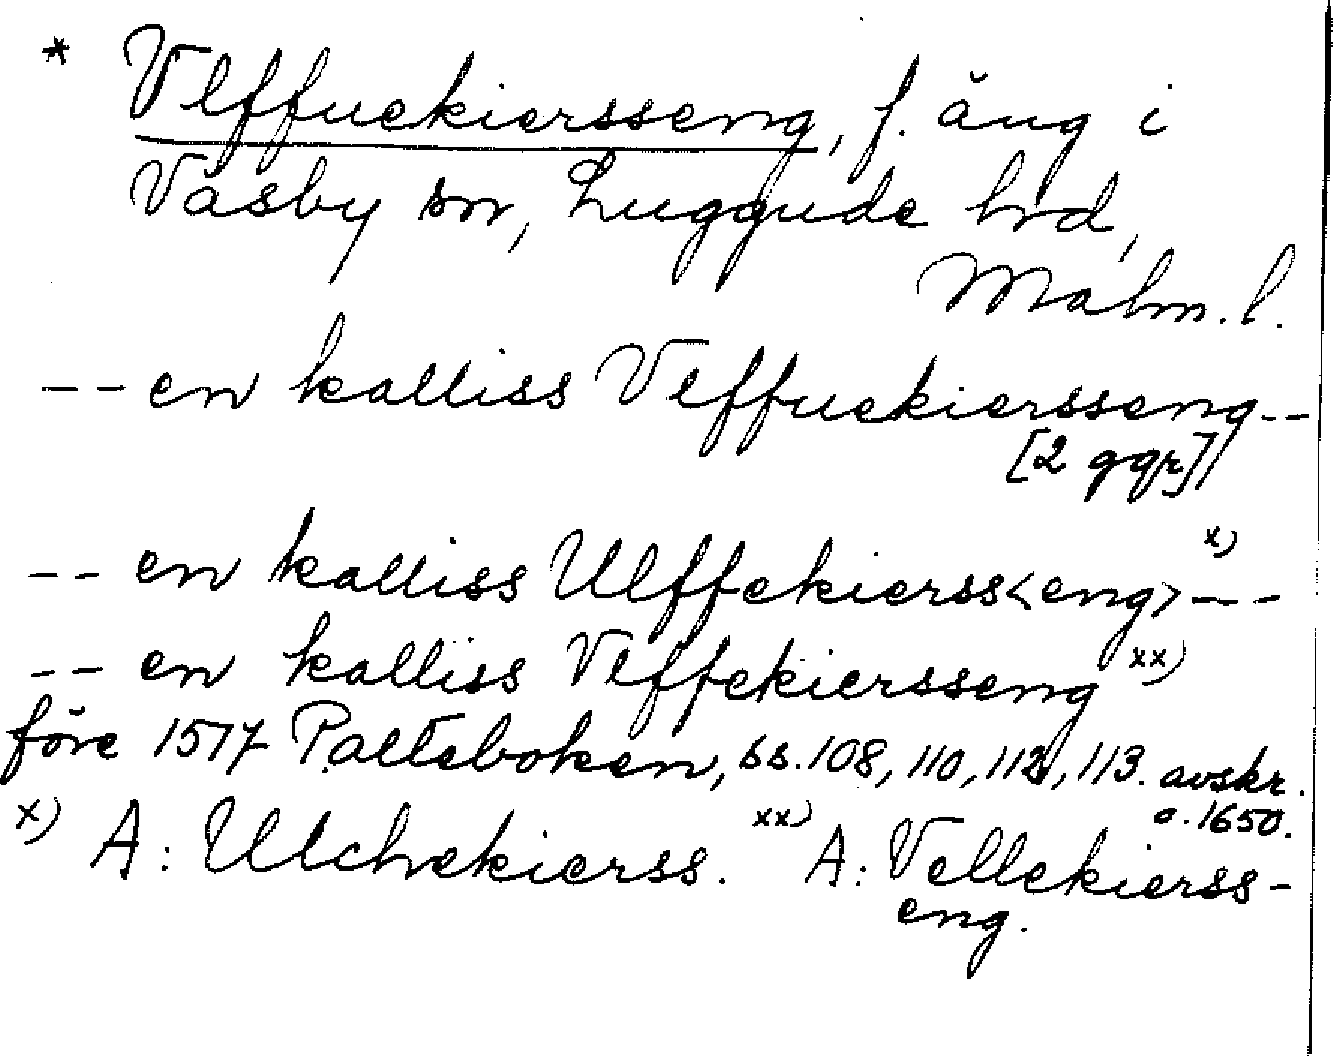 * Vlffuekiersseng, f. äng i
Väsby sn, Luggude hrd,
Malm. l.
-- en kalliss Vlffuekiersseng --
[2 ggr]
-- en kalliss Ulffekierss<eng> x) --
-- en kalliss Vlffekiersseng xx)
före 1517 Palteboken, ss. 108, 110, 112, 113. avskr.
c. 1650.
x) A: Ulchekierss. xx) A: Vellekierss-
eng.